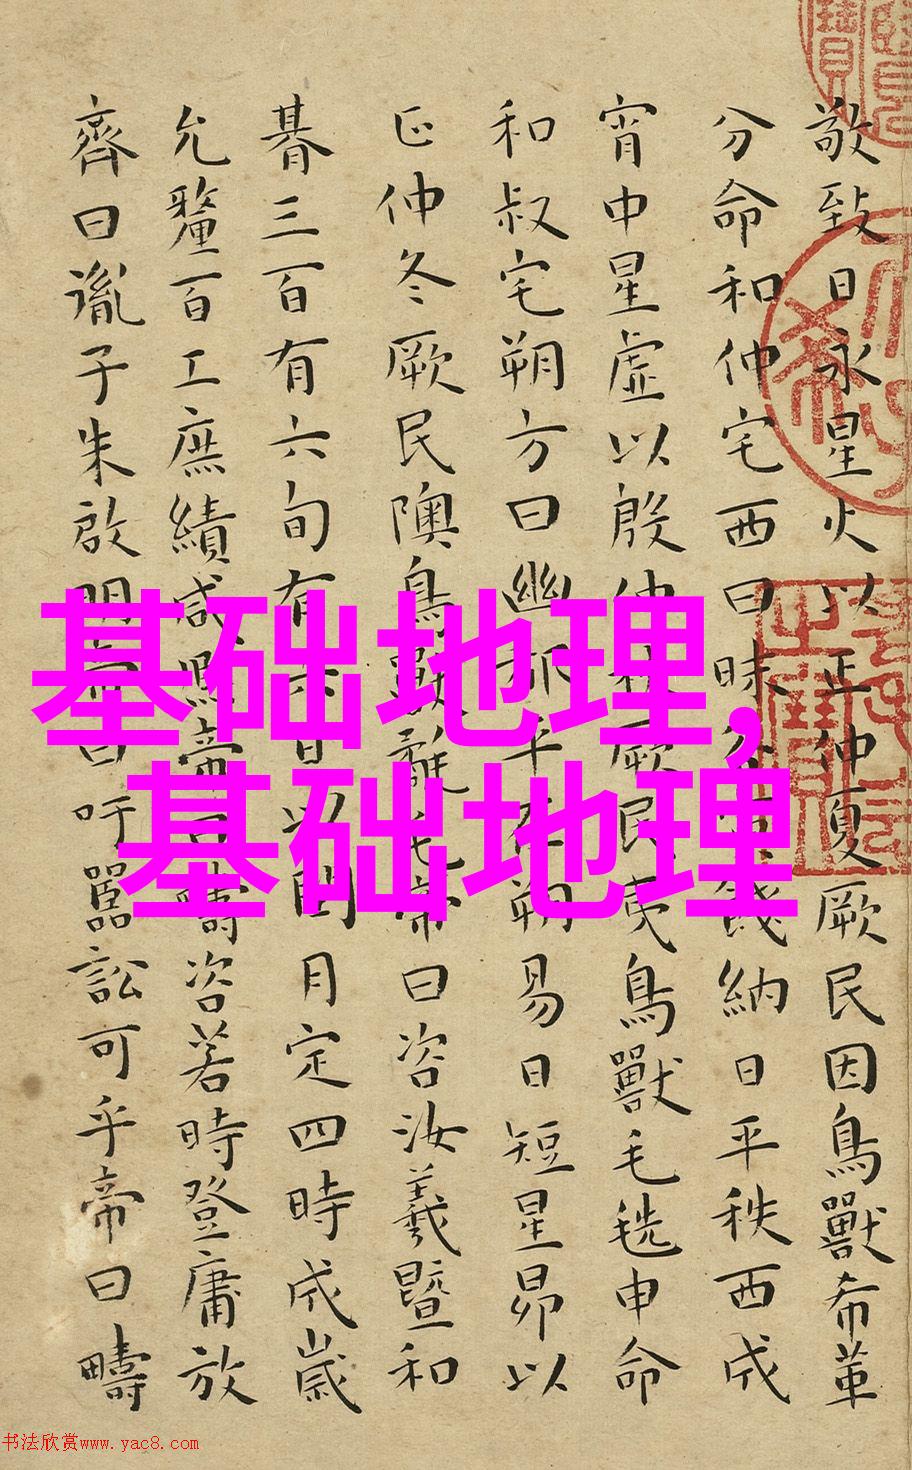 敬致日永星火以正仲夏厥民因鳥獸希革
分命和仲宅西曰昧谷寅餞納日平秩西成
宵中星虛以殷仲秋厥民夷鳥獸毛毨申命
和叔宅朔方曰幽都平在朔易日短星昴以
正仲冬厥民隩鳥獸氄毛帝曰咨汝羲暨和
朞三百有六旬有六日以閏月定四時成歲
允釐百工庶績咸熙帝曰疇咨若時登庸放
齊曰胤子朱啟明帝曰吁嚚訟可乎帝曰疇
基础地理,
基础地理
书法欣赏www.yac8.com